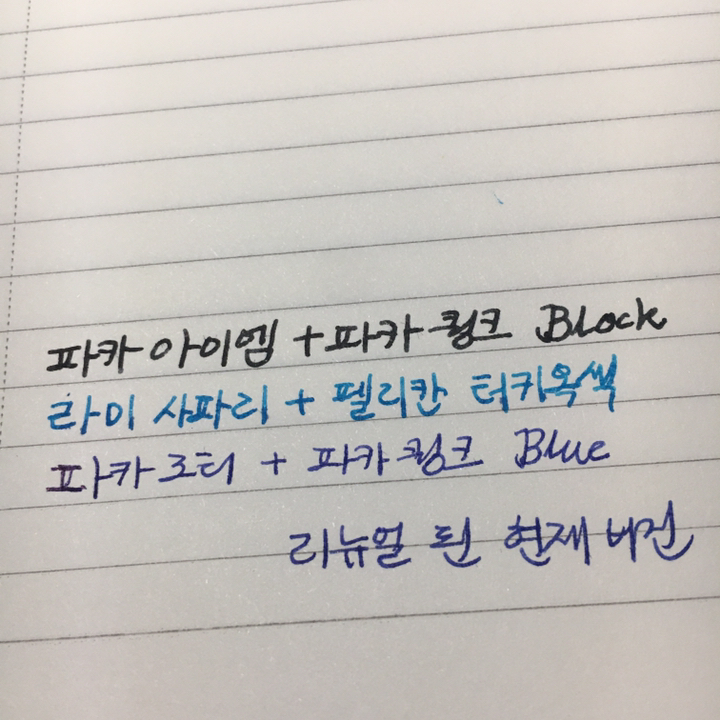 파카 아이엠 + 파카 큉크 Black
라미 사파리 + 펠리칸 터키옥색
파카 조터 + 파카 큉크 Blue
리뉴얼 된 현재 버전